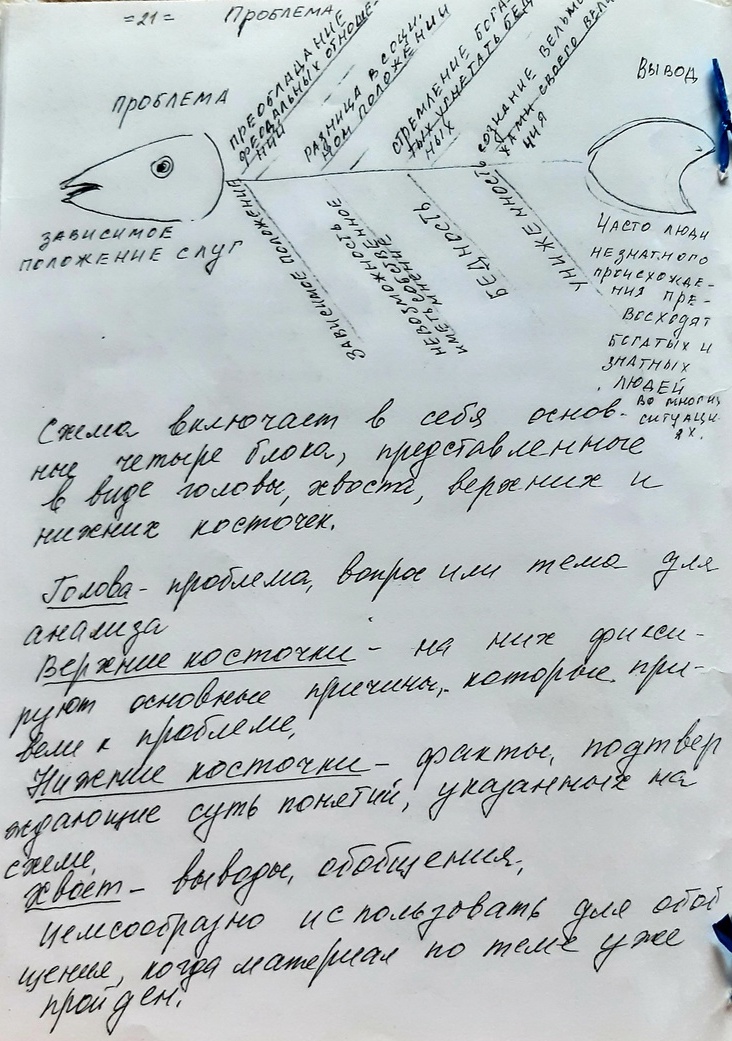 =21= ПРОБЛЕМА
ПРОБЛЕМА
ПРЕОБЛАДАНИЕ
ФЕОДАЛЬНЫХ ОТНОШЕ-
НИЙ
РАЗНИЦА В СОЦИ-
НОМ ПОЛОЖЕНИИ
СТРЕМЛЕНИЕ БОГА-
ТЫХ УГНЕТАТЬ БЕД-
НЫХ
СОЗНАНИЕ ВЕЛЬМО
ЖАМИ СВОЕГО ВЕЛИ
ЧИЯ
ВЫВОД
ЗАВИСИМОЕ
ПОЛОЖЕНИЕ СЛУГ
ЗАВИСИМОЕ ПОЛОЖЕНИЕ
НЕВОЗМОЖНОСТЬ
ИМЕТЬ СОБСТВЕННОЕ
МНЕНИЕ
БЕДНОСТЬ
УНИЖЕННОСТЬ
ЧАСТО ЛЮДИ
НЕЗНАТНОГО
ПРОИСХОЖДЕ-
НИЯ ПРЕ-
ВОСХОДЯТ
БОГАТЫХ И
ЗНАТНЫХ
ЛЮДЕЙ
ВО МНОГИХ
СИТУАЦИ-
ЯХ.
Схема включает в себя основ-
ные четыре блока, представленные
в виде головы, хвоста, верхних и
нижних косточек.
Голова - проблема, вопрос или тема для
анализа
Верхние косточки - на них фикси-
руют основные причины, которые при-
вели к проблеме,
Нижние косточки - факты, подтвер
ждающие суть понятий, указанных на
схеме,
Хвост - выводы, обобщения,
Целесообразно использовать для обоб
щения, когда материал по теме уже
пройден.